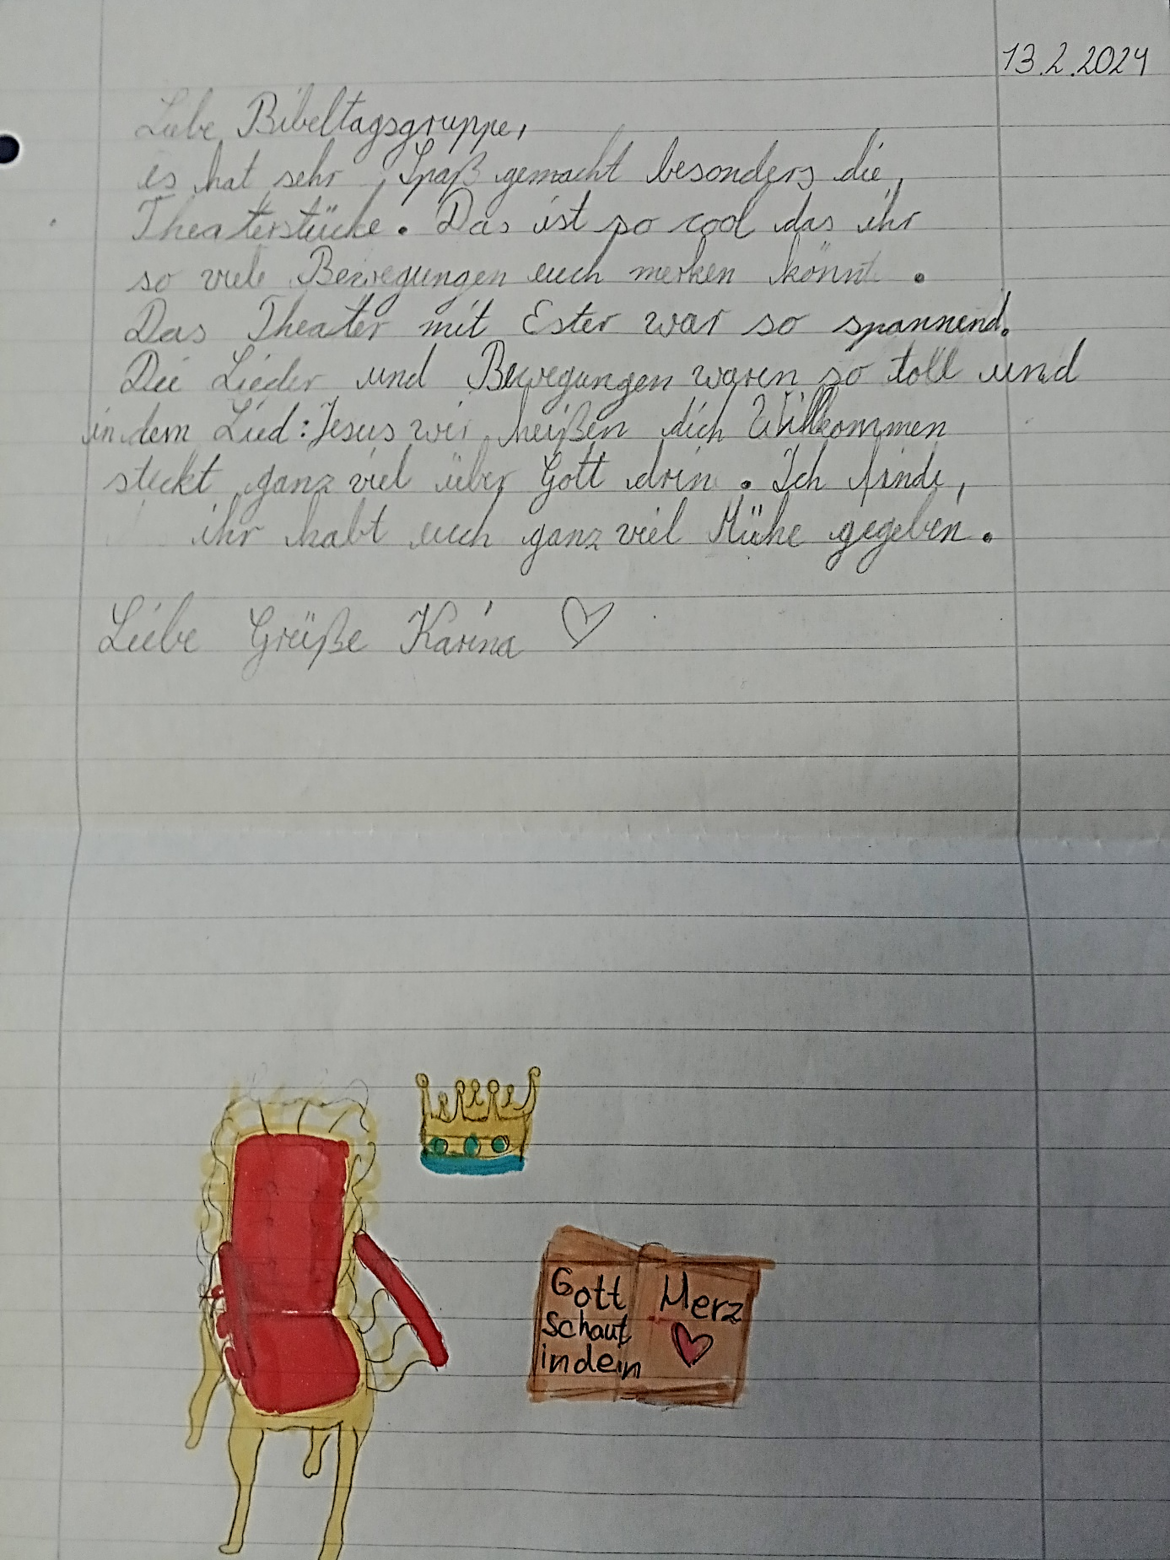 13.2.2024
Liebe Bibeltagsgruppe,
es hat sehr Spaß gemacht besonders die
Theaterstücke. Das ist so cool das ihr
so viele Bewegungen euch merken könnt.
Das Theater mit Ester war so spannend.
Die Lieder und Bewegungen waren so toll und
in dem Lied: Jesus wir heißen dich Willkommen
steckt ganz viel über Gott drin. Ich finde,
ihr habt euch ganz viel Mühe gegeben.
Liebe Grüße Karina ♡
Gott
schaut
in dein
Herz